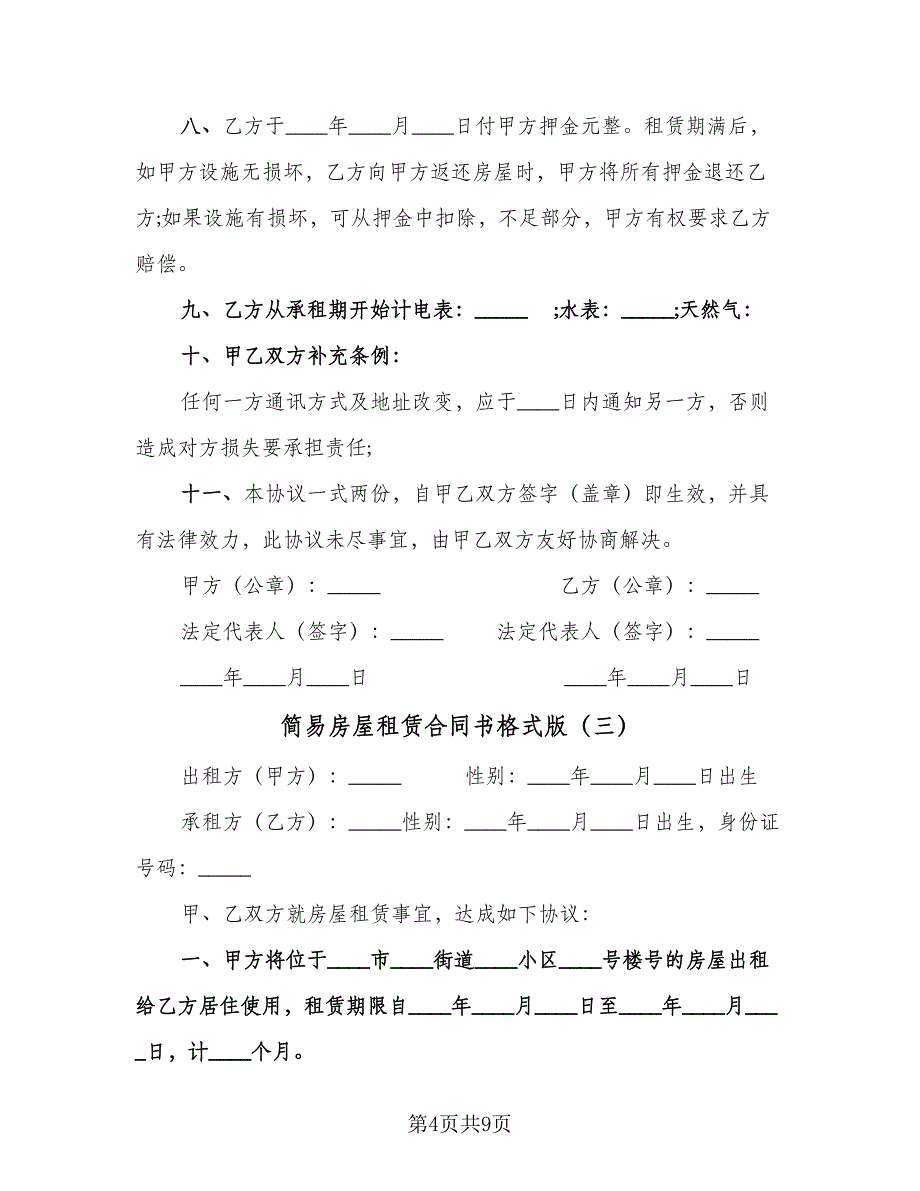 八、乙方于____年____月____日付甲方押金元整。租赁期满后，
如甲方设施无损坏，乙方向甲方返还房屋时，甲方将所有押金退还乙
方;如果设施有损坏，可从押金中扣除，不足部分，甲方有权要求乙方
赔偿。
九、乙方从承租期开始计电表：_____ ;水表：_____;天然气：
十、甲乙双方补充条例：
任何一方通讯方式及地址改变，应于____日内通知另一方，否则
造成对方损失要承担责任;
十一、本协议一式两份，自甲乙双方签字（盖章）即生效，并具
有法律效力，此协议未尽事宜，由甲乙双方友好协商解决。
甲方（公章）：_____ 乙方（公章）：_____
法定代表人（签字）：_____ 法定代表人（签字）：_____
____年____月____日 ____年____月____日
简易房屋租赁合同书格式版（三）
出租方（甲方）：_____ 性别：____年____月____日出生
承租方（乙方）：_____性别：____年____月____日出生，身份证
号码：_____
甲、乙双方就房屋租赁事宜，达成如下协议：
一、甲方将位于____市____街道____小区____号楼号的房屋出租
给乙方居住使用，租赁期限自____年____月____日至____年____月___
_日，计____个月。
第4页共9页